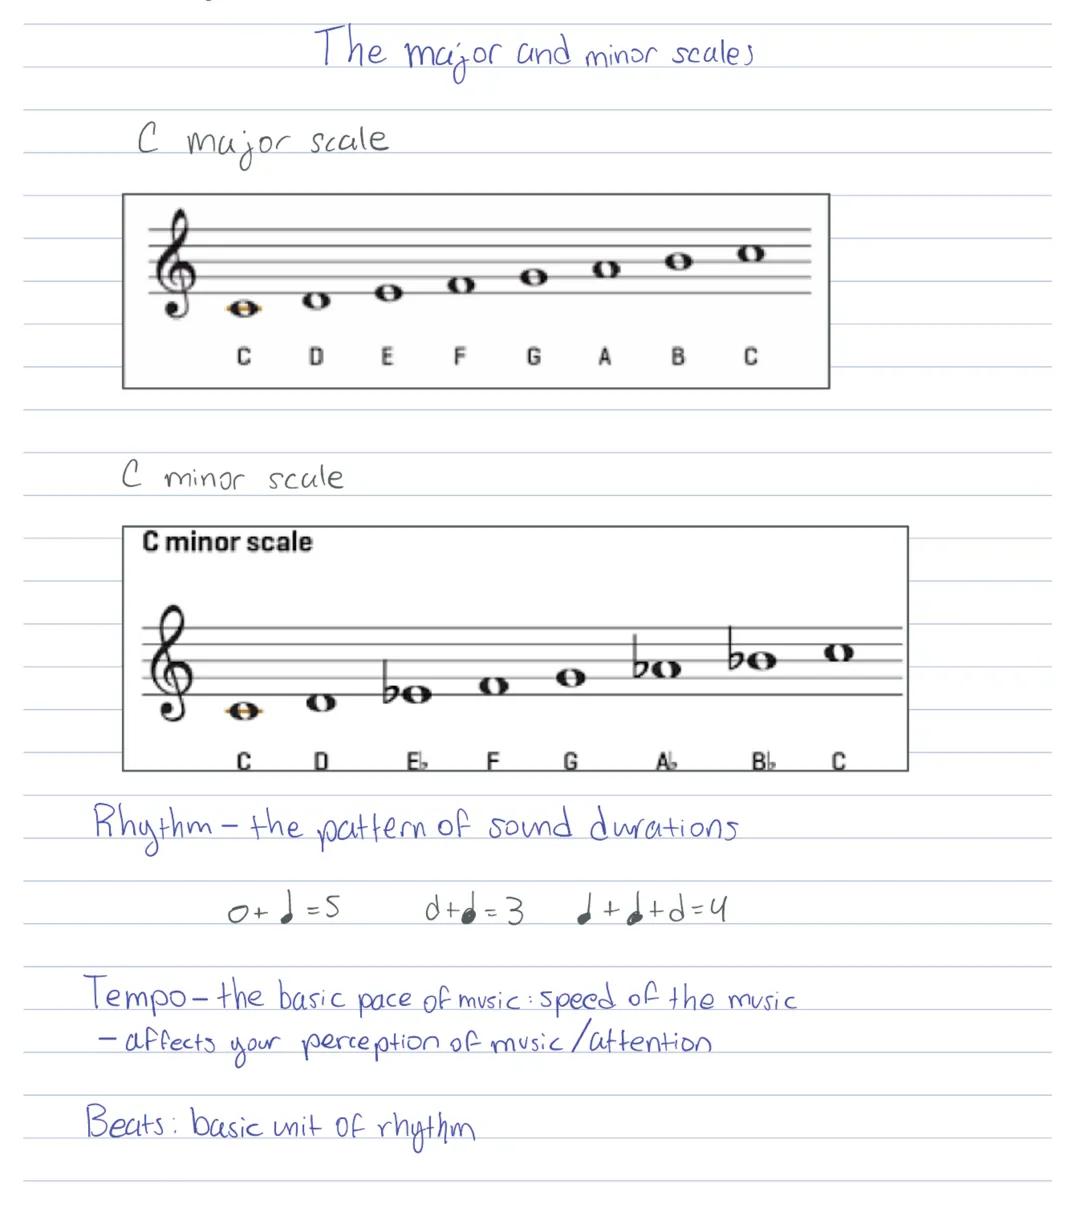 The major and minor scales
C major scale
C D E F G A B C
C minor scale
C minor scale
C D E♭ F G A♭ B♭ C
Rhythm - the pattern of sound durations
𝅝 + ♩ = 5 𝅗𝅥 + ♩ = 3 ♩ + ♩ + 𝅗𝅥 = 4
Tempo - the basic pace of music : speed of the music
- affects your perception of music / attention
Beats : basic unit of rhythm